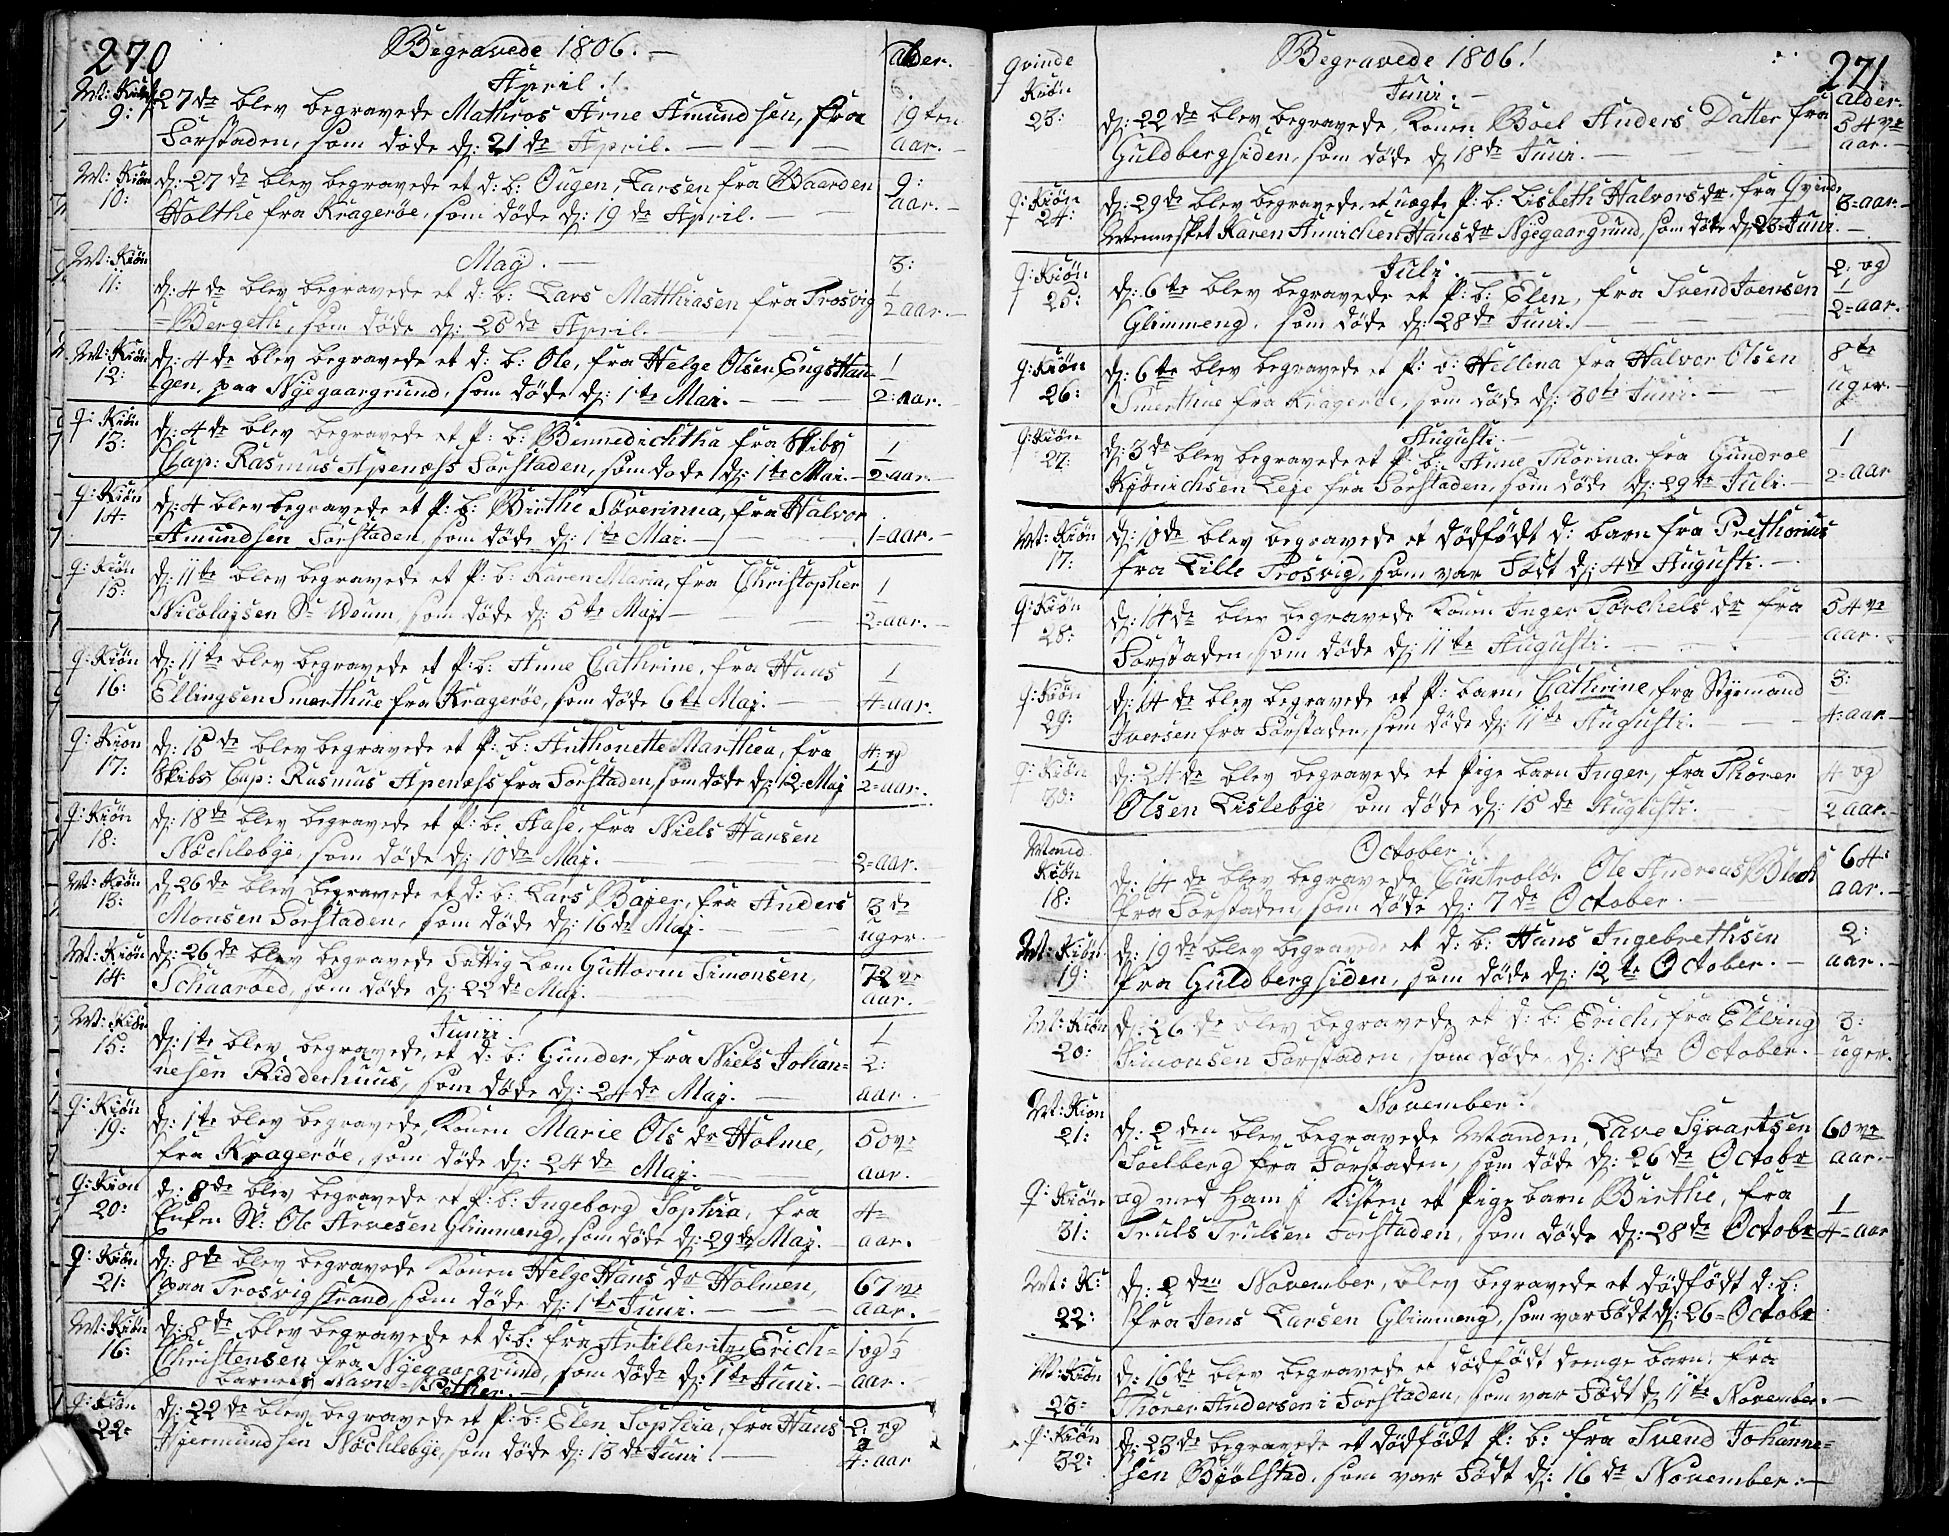 270
Begravede 1806. —
alder.
April.!
M: Kiön 9: 27de blev begravede Mathros Arne Amundsen, fra 19ten
Forstaden, som döde d: 21de April. — aar.
M: Kiön 10: d: 27de blev begravede et d: b: Ougen, Larsen fra Baarden 9:
Holthe fra Kragerøe, som döde d: 19de April. — aar. —
Maj. —
M: Kiön 11: d: 4de blev begravede et d: b: Lars Matthiasen fra Trosvig 3: 1/2 aar. —
=Bergeth, som döde d: 25de April. —
M: Kiön 12: d: 4de blev begravede et d: b: Ole, fra Helge Olsen EngsHau= 1/2: aar.
=gen, paa Nyegaargrund, som döde d: 1te Mai. —
q: Kiön 13: d: 4de blev begravede et p: b: Bennedichtha fra Skibs 1/2 aar. —
Cap: Rasmus Apenæss Forstaden, som döde d: 1te Mai. —
q: Kiön 14: d: 4 blev begravede et p: b: Birthe Söverinna, fra Halvor
=Amundsen Forstaden, som döde d: 1te Mai. — 1=aar. —
q: Kiön 15: d: 11te blev begravede et p: b: Karen Maria, fra Christopher 1/2=aar. —
Nicolajsen Sr Weum, som döde d: 5te Maj —
q: Kiön 16: d: 11te blev begravede et p: b: Anne Cathrine, fra Hans 1/4=aar.
Ellingsen Smerthue fra Kragerøe, som döde 6te Maj. —
q: Kiön 17: d: 15de blev begravede et p: b: Anthonette Marthea, fra 4: og
Skibs Cap: Rasmus Apenæss fra Forstaden, som döde d: 12: Maj 1/2=aar.
q: Kiön 18: d: 18de blev begravede et p: b: Aase, fra Niels Hansen
Nöchlebye, som döde d: 10de Maj. — 2=aar. —
M: Kiön 13: d: 26de blev begravede et d: b: Lars Bajer, fra Anders 3de
Monsen Forstaden, som döde d: 16de Maj. — uger. —
M: Kiön 14: d: 26de blev begravede Fattig Lem Guttorm Simonsen, 72ve
Schaarded, som döde d: 22de Maj. aar. —
Junii.
M: Kiön 15: d: 1te blev begravede, et d: b: Gunder, fra Niels Johan= 1/2:
nesen Ridderhuus, som döde d: 24de Maj. — aar. —
q: Kiön 19: d: 1te blev begravede, Konen Marie Ols dr Holme, 50ve
fra Kragerøe, som döde d: 24de Maj. — aar.
q: Kiön 20: d: 8de blev begravede et p: b: Ingeborg Sophia, fra 4=
Enken Sl: Ole Arnesen Glimmeng, som döde d: 29de Maj. — aar.
q: Kiön 21: d: 8de blev begravede Konen Helge Hans dr Holmen, 67ve
paa Trosvigstrand, som döde d: 1te Juni. — aar. —
M: Kiön 16: d: 8de blev begravede et d: b: fra Artilleritz Erich= 1 og 1/2
Christensen fra Nyegaargrund, som döde d: 1te Juni. — aar.
barnets Navn=Pether. —
q: Kiön 22= d: 22de blev begravede et p: b: Elen Sophia, fra Hans 2: og
Hjermundsen Nöchlebye, som döde d: 13de Juni. — 1/4: aar
271
Begravede 1806!
Juni. —
alder.
qvinde Kiön 23: d: 22de blev begravede, Konen Boel Anders Datter fra 54ve
Guldbergsiden, som döde d: 18de Juni. — aar. —
q: Kiön 24: d: 29de blev begravede, et uægte p: b: Lisbeth Halvors dr fra Qvinde 3=aar. —
Mennesket Karen Hans dr Nyegaargrund, som döde d: 23 Juni. —
Juli. —
q: Kiön 25: d: 6te blev begravede et p: b: Elen, fra Svend Svensen 2: og
Glimmeng, som döde d: 28de Juni. — 1/2=aar. —
q: Kiön 26: d: 6te blev begravede et p: b: Hellena fra Halvor Olsen 8te
Smerthue fra Kragerøe, som döde d: 30te Juni. — uger. —
Augusti.
q: Kiön 27: d: 3de blev begravede et p: b: Anne Thorina fra Gundroe 1/2=aar
Kiönichsen Leje fra Forstaden, som döde d: 29te Juli. —
M: Kiön 17: d: 10de blev begravede et dödfödt d: barn fra Prethorius
fra Lille Trosvig, som var Födt d: 4de Augusti. —
q: Kiön 28: d: 14de blev begravede Konen Inger Torchels dr fra 54ve
Forstaden, som döde d: 11te Augusti. — aar. —
q: Kiön 29: d: 14de blev begravede et p: barn, Cathrine, fra Styrmand 3:
Iversen fra Forstaden, som döde d: 11te Augusti. — 4=aar. —
q: Kiön 30: d: 24de blev begravede et Pige barn Inger, fra Thorer 4 og
Olsen Lislebye, som döde d: 15de Augusti. — 2 aar. —
October.
Mand Kiön 18: d: 14de blev begravede Controlör Ole Andreas Bloch 64:
fra Forstaden som döde d: 7de October. — aar. —
M: Kiön 19: d: 19de blev begravede et d: b: Hans Ingebrethsen 2:
fra Guldbergsiden, som döde d: 12te October. — aar. —
M: Kiön 20: d: 26de blev begravede et d: b: Erich, fra Elling 3:
Simonsen Forstaden som döde d: 18de October. — uger. —
November.
M: Kiön 21: d: 2den blev begravede Manden, Lave Syvartsen 60ve
Soelberg fra Forstaden, som döde d: 26de Octobr aar. —
q: Kiön 31: og med Ham i Kisten et Pige barn Birthe, fra 1/4=aar
Truls Trulsen Forstaden, som döde d: 28de Octobr
M: K: 22: d: 2den November, blev begravede et dödfödt d: b:
fra Jens Larsen Glimmeng, som var Födt d: 26=Octobr
M: Kiön 23: d: 16de blev begravede et dödfödt drenge barn, fra
Thorer Andersen i Forstaden, som var Födt d: 11te November. —
q: Kiön 32: d: 23de begravede et dödfödt p: b: fra Svend Johanne=
sen Bjölstad, som var Födt d: 16de November. —